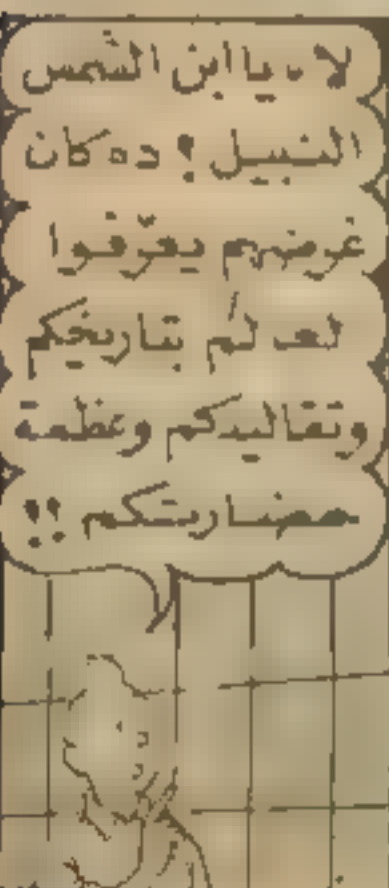 لا، يا ابن الشمس
النبيل! ده كان
غرضهم يعرفوا
العالم بتاريخكم
وتقاليدكم وعظمة
حضارتكم!!